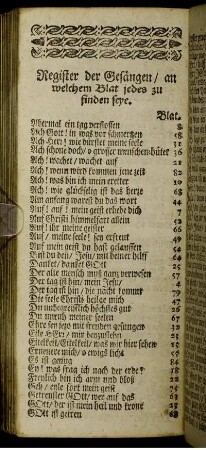 Register der Gesängen / an
welchem Blat jedes zu
finden seye.
Blat.
Abermal ein tag verflossen 8
Ach Gott! in was vor schmertzen 18
Ach Herr! wie dürstet meine seele 31
Ach schone doch / o grosser menschen-hüter 16
Ach! wachet / wachet auf 21
Ach! wenn wird kommen jene zeit
Ach! was bin ich mein erretter
Ach! wie glückselig ist das hertz 63
Am anfang warest du das wort 44
Auf! auf! mein geist erhebe dich 7
Auf Christi himmelfart allein 53
Auf! ihr meine geister 66
Auf! meine seele! sey erfreut 49
Auf mein geist
Bist du da / Jesu / mit deiner hülf
Danket / danket GOtt 25
Der alle mensch muß gantz verwesen 57
Der tag ist hin / mein Jesu / 4
Der tag ist hin / die nacht kommt 79
Die seele Christi heilge mich 69
Du unbegreiflich höchstes gut 26
Du wunsch meiner seelen
Ehre sey jetzo mit freuden gesungen
Eile HErr / mir beyzustehn
Eitelkeit / Eitelkeit / was wir hier sehen
Erneure mich / o ewigs licht 54
Es ist gnung 82
Ey! was frag ich nach der erde? 75
Freulich bin ich arm und bloß 29
Geh / eile fort mein geist
Getreuster GOtt / wer auf das 63
GOtt / der ist mein heil und krone
GOtt ist getreu 68